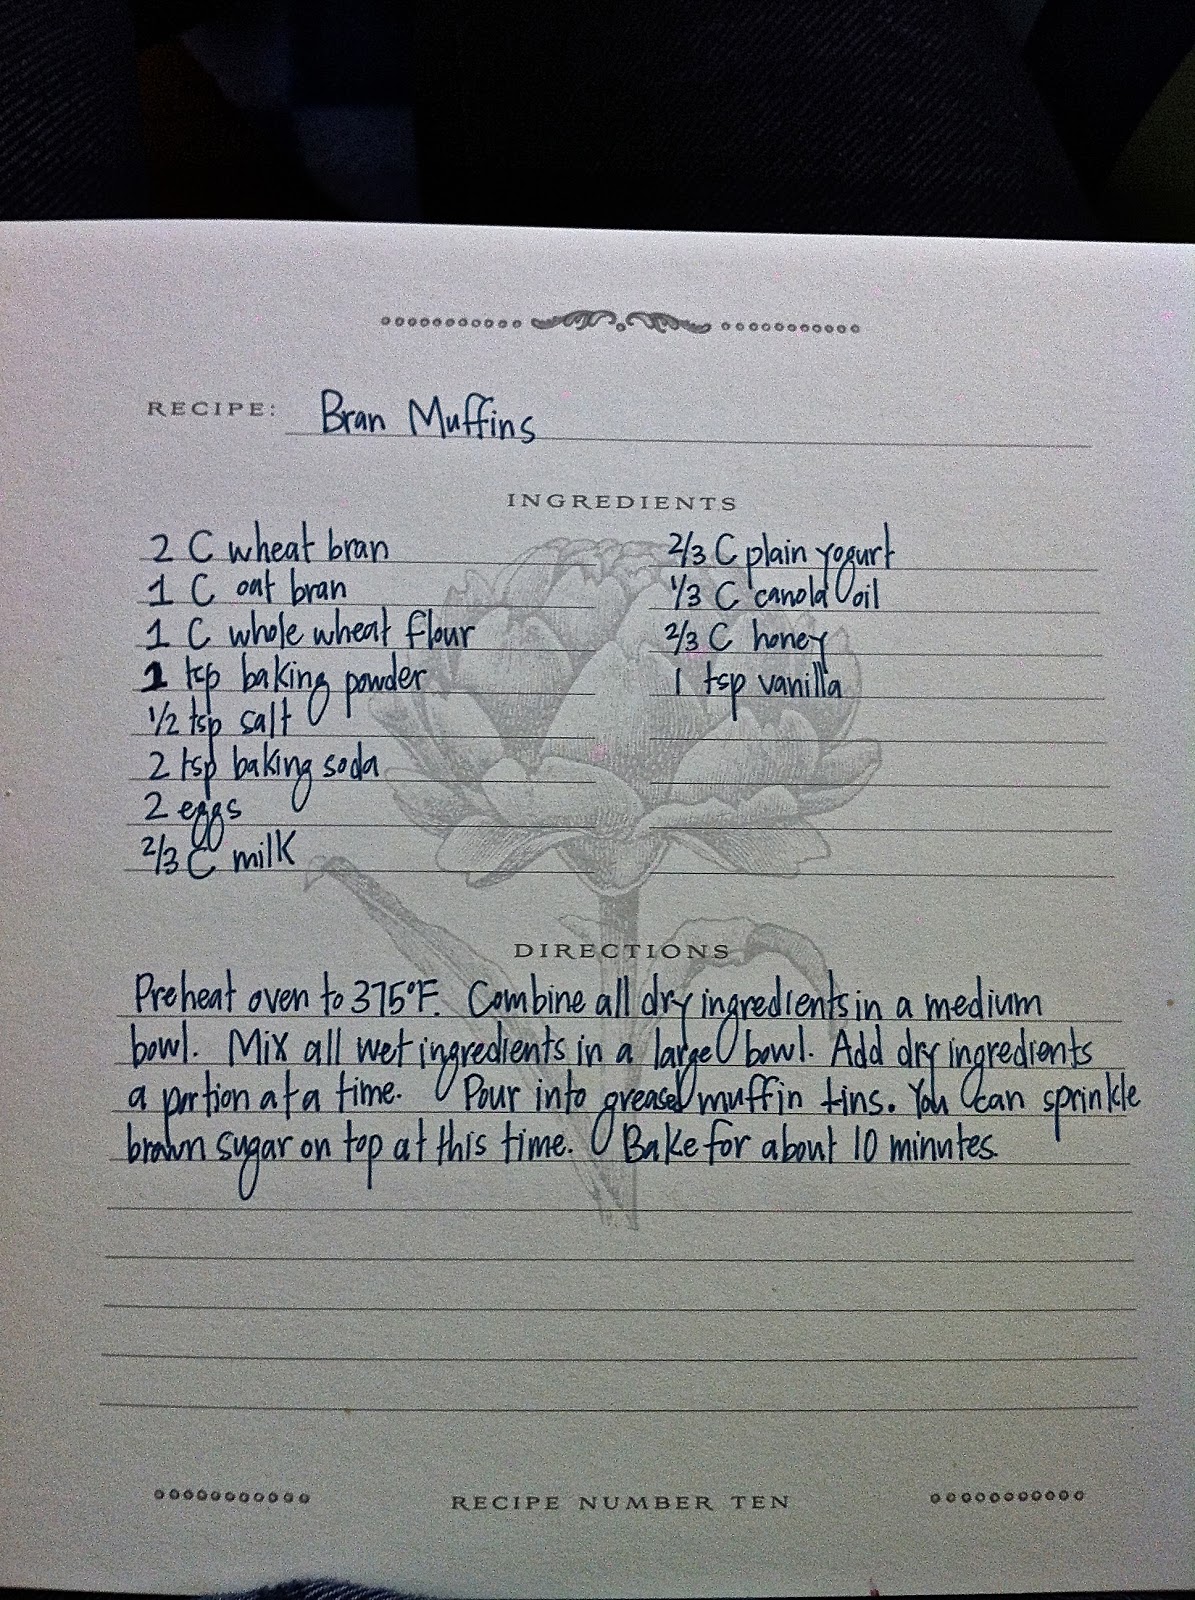 RECIPE: Bran Muffins
INGREDIENTS
2 C wheat bran
1 C oat bran
1 C whole wheat flour
1 tsp baking powder
1/2 tsp salt
2 tsp baking soda
2 eggs
2/3 C milk
2/3 C plain yogurt
1/3 C canola oil
2/3 C honey
1 tsp vanilla
DIRECTIONS
Preheat oven to 375°F. Combine all dry ingredients in a medium
bowl. Mix all wet ingredients in a large bowl. Add dry ingredients
a portion at a time. Pour into greased muffin tins. You can sprinkle
brown sugar on top at this time. Bake for about 10 minutes.
RECIPE NUMBER TEN